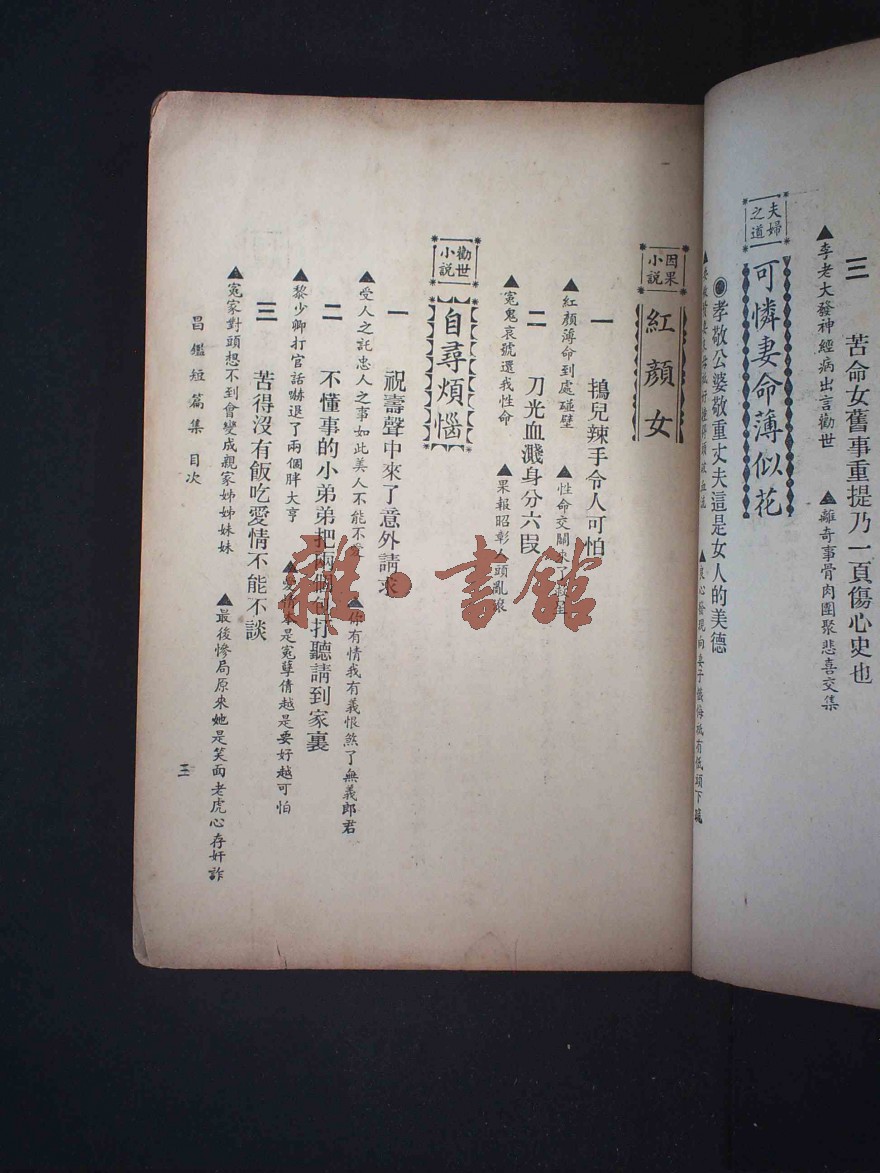 三　苦命女舊事重提乃一頁傷心史也
▲李老大發神經病出言勸世　▲離奇事骨肉團聚悲喜交集
夫婦之道
可憐妻命薄似花
◉孝敬公婆敬重丈夫這是女人的美德
因果小說
紅顏女
一　鴇兒辣手令人可怕
▲紅顏薄命到處碰壁　▲性命交關來了救星
二　刀光血濺身分六段
▲冤鬼哀號還我性命　▲果報昭彰人頭亂滾
勸世小說
自尋煩惱
一　祝壽聲中來了意外請求
▲受人之託忠人之事如此美人不能不愛　▲你有情我有義恨煞了無義郎君
二　不懂事的小弟弟把兩個打聽請到家裏
▲黎少卿打官話嚇退了兩個胖大亨　▲愛情本是冤孽倩越是要好越可怕
三　苦得沒有飯吃愛情不能不談
▲冤家對頭想不到會變成親家姊姊妹妹　▲最後慘局原來她是笑面老虎心存奸詐
昌鑑短篇集　目次
三
雜·書館